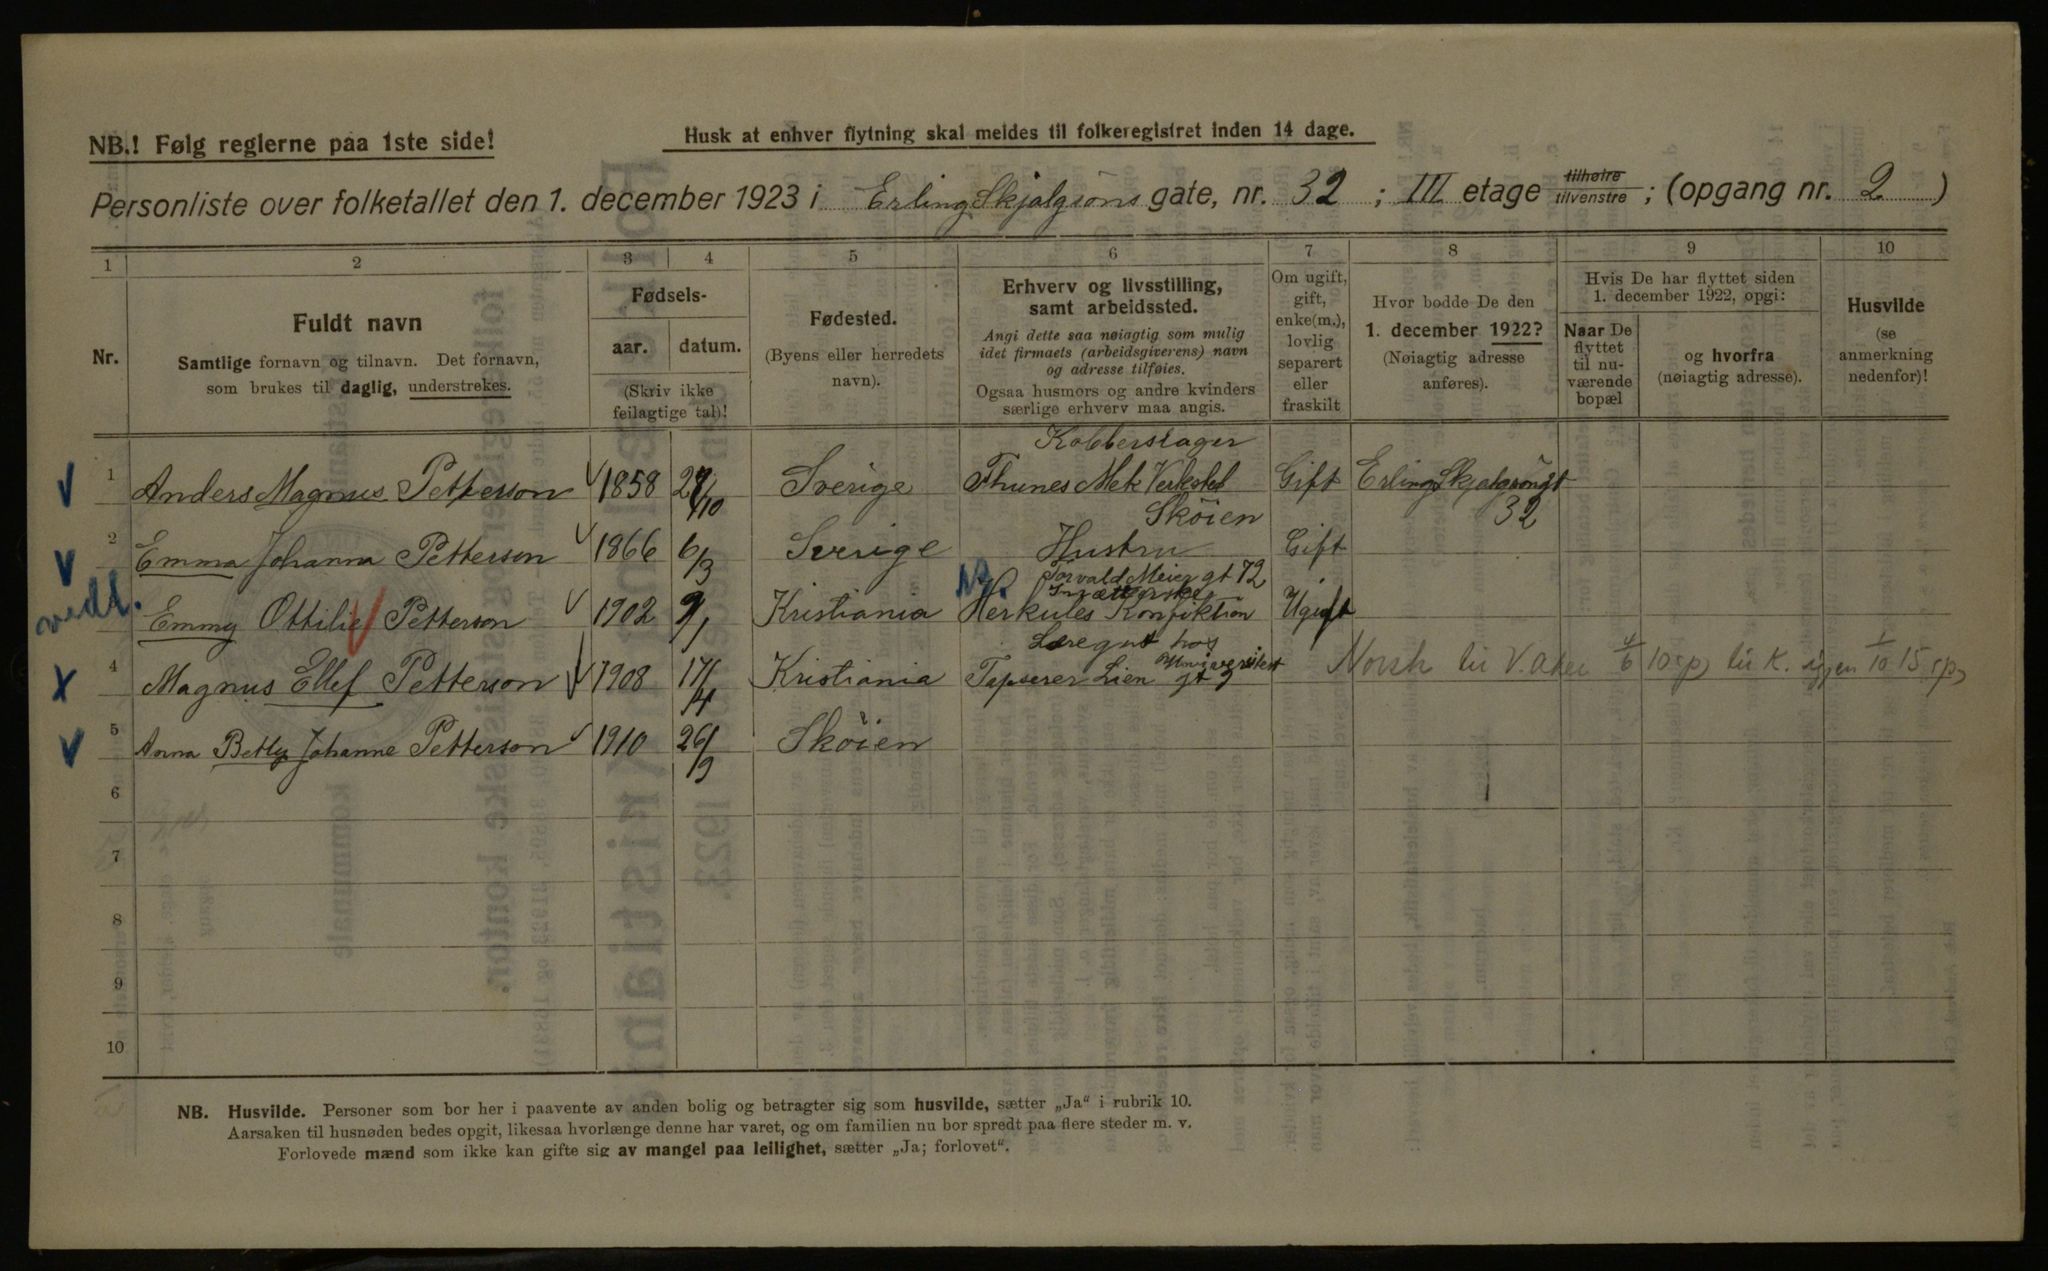 NB.! Følg reglerne paa 1ste side!
Husk at enhver flytning skal meldes til folkeregistret inden 14 dage.
Personliste over folketallet den 1. december 1923 i Erling Skjalgsøns gate, nr. 32 ; III etage tilhøire tilvenstre ; (opgang nr. 2 )
1 2 3 4 5 6 7 8 9 10
Nr.
Fuldt navn
Samtlige fornavn og tilnavn. Det fornavn,
som brukes til daglig, understrekes.
Fødsels-
aar. datum.
(Skriv ikke
feilagtige tal)!
Fødested.
(Byens eller herredets
navn).
Erhverv og livsstilling,
samt arbeidssted.
Angi dette saa nøiagtig som mulig
idet firmaets (arbeidsgiverens) navn
og adresse tilføies.
Ogsaa husmors og andre kvinders
særlige erhverv maa angis.
Om ugift,
gift,
enke(m.),
lovlig
separert
eller
fraskilt
Hvor bodde De den
1. december 1922?
(Nøiagtig adresse
anføres).
Hvis De har flyttet siden
1. december 1922, opgi:
Naar De
flyttet
til nu-
værende
bopæl
og hvorfra
(nøiagtig adresse).
Husvilde
(se
anmerkning
nedenfor)!
Kobberslager
1 Anders Magnus Petterson 1858 /10 Sverige Thunes Mek Verksted Gift Erling Skjalgsöngt
Sköien 32
2 Emma Johanna Petterson 1866 6/3 Sverige Hustru Gift
Torvald Meier gt 72
Emmy Ottilie Petterson 1902 9/1 Kristiania Herkules Konfektion Ugift
Læregut hos
4 Magnus Ellef Petterson 1908 17/4 Kristiania Tapserer Lien Universitest gt 9 Norsk til V. Aker 4/6 10 sp, til K. igjen 1/10 15 sp,
5 Anna Betty Johanne Petterson 1910 26/9 Sköien
6
7
8
9
10
NB. Husvilde. Personer som bor her i paavente av anden bolig og betragter sig som husvilde, sætter „Ja“ i rubrik 10.
Aarsaken til husnøden bedes opgit, likesaa hvorlænge denne har varet, og om familien nu bor spredt paa flere steder m. v.
Forlovede mænd som ikke kan gifte sig av mangel paa leilighet, sætter „Ja; forlovet“.